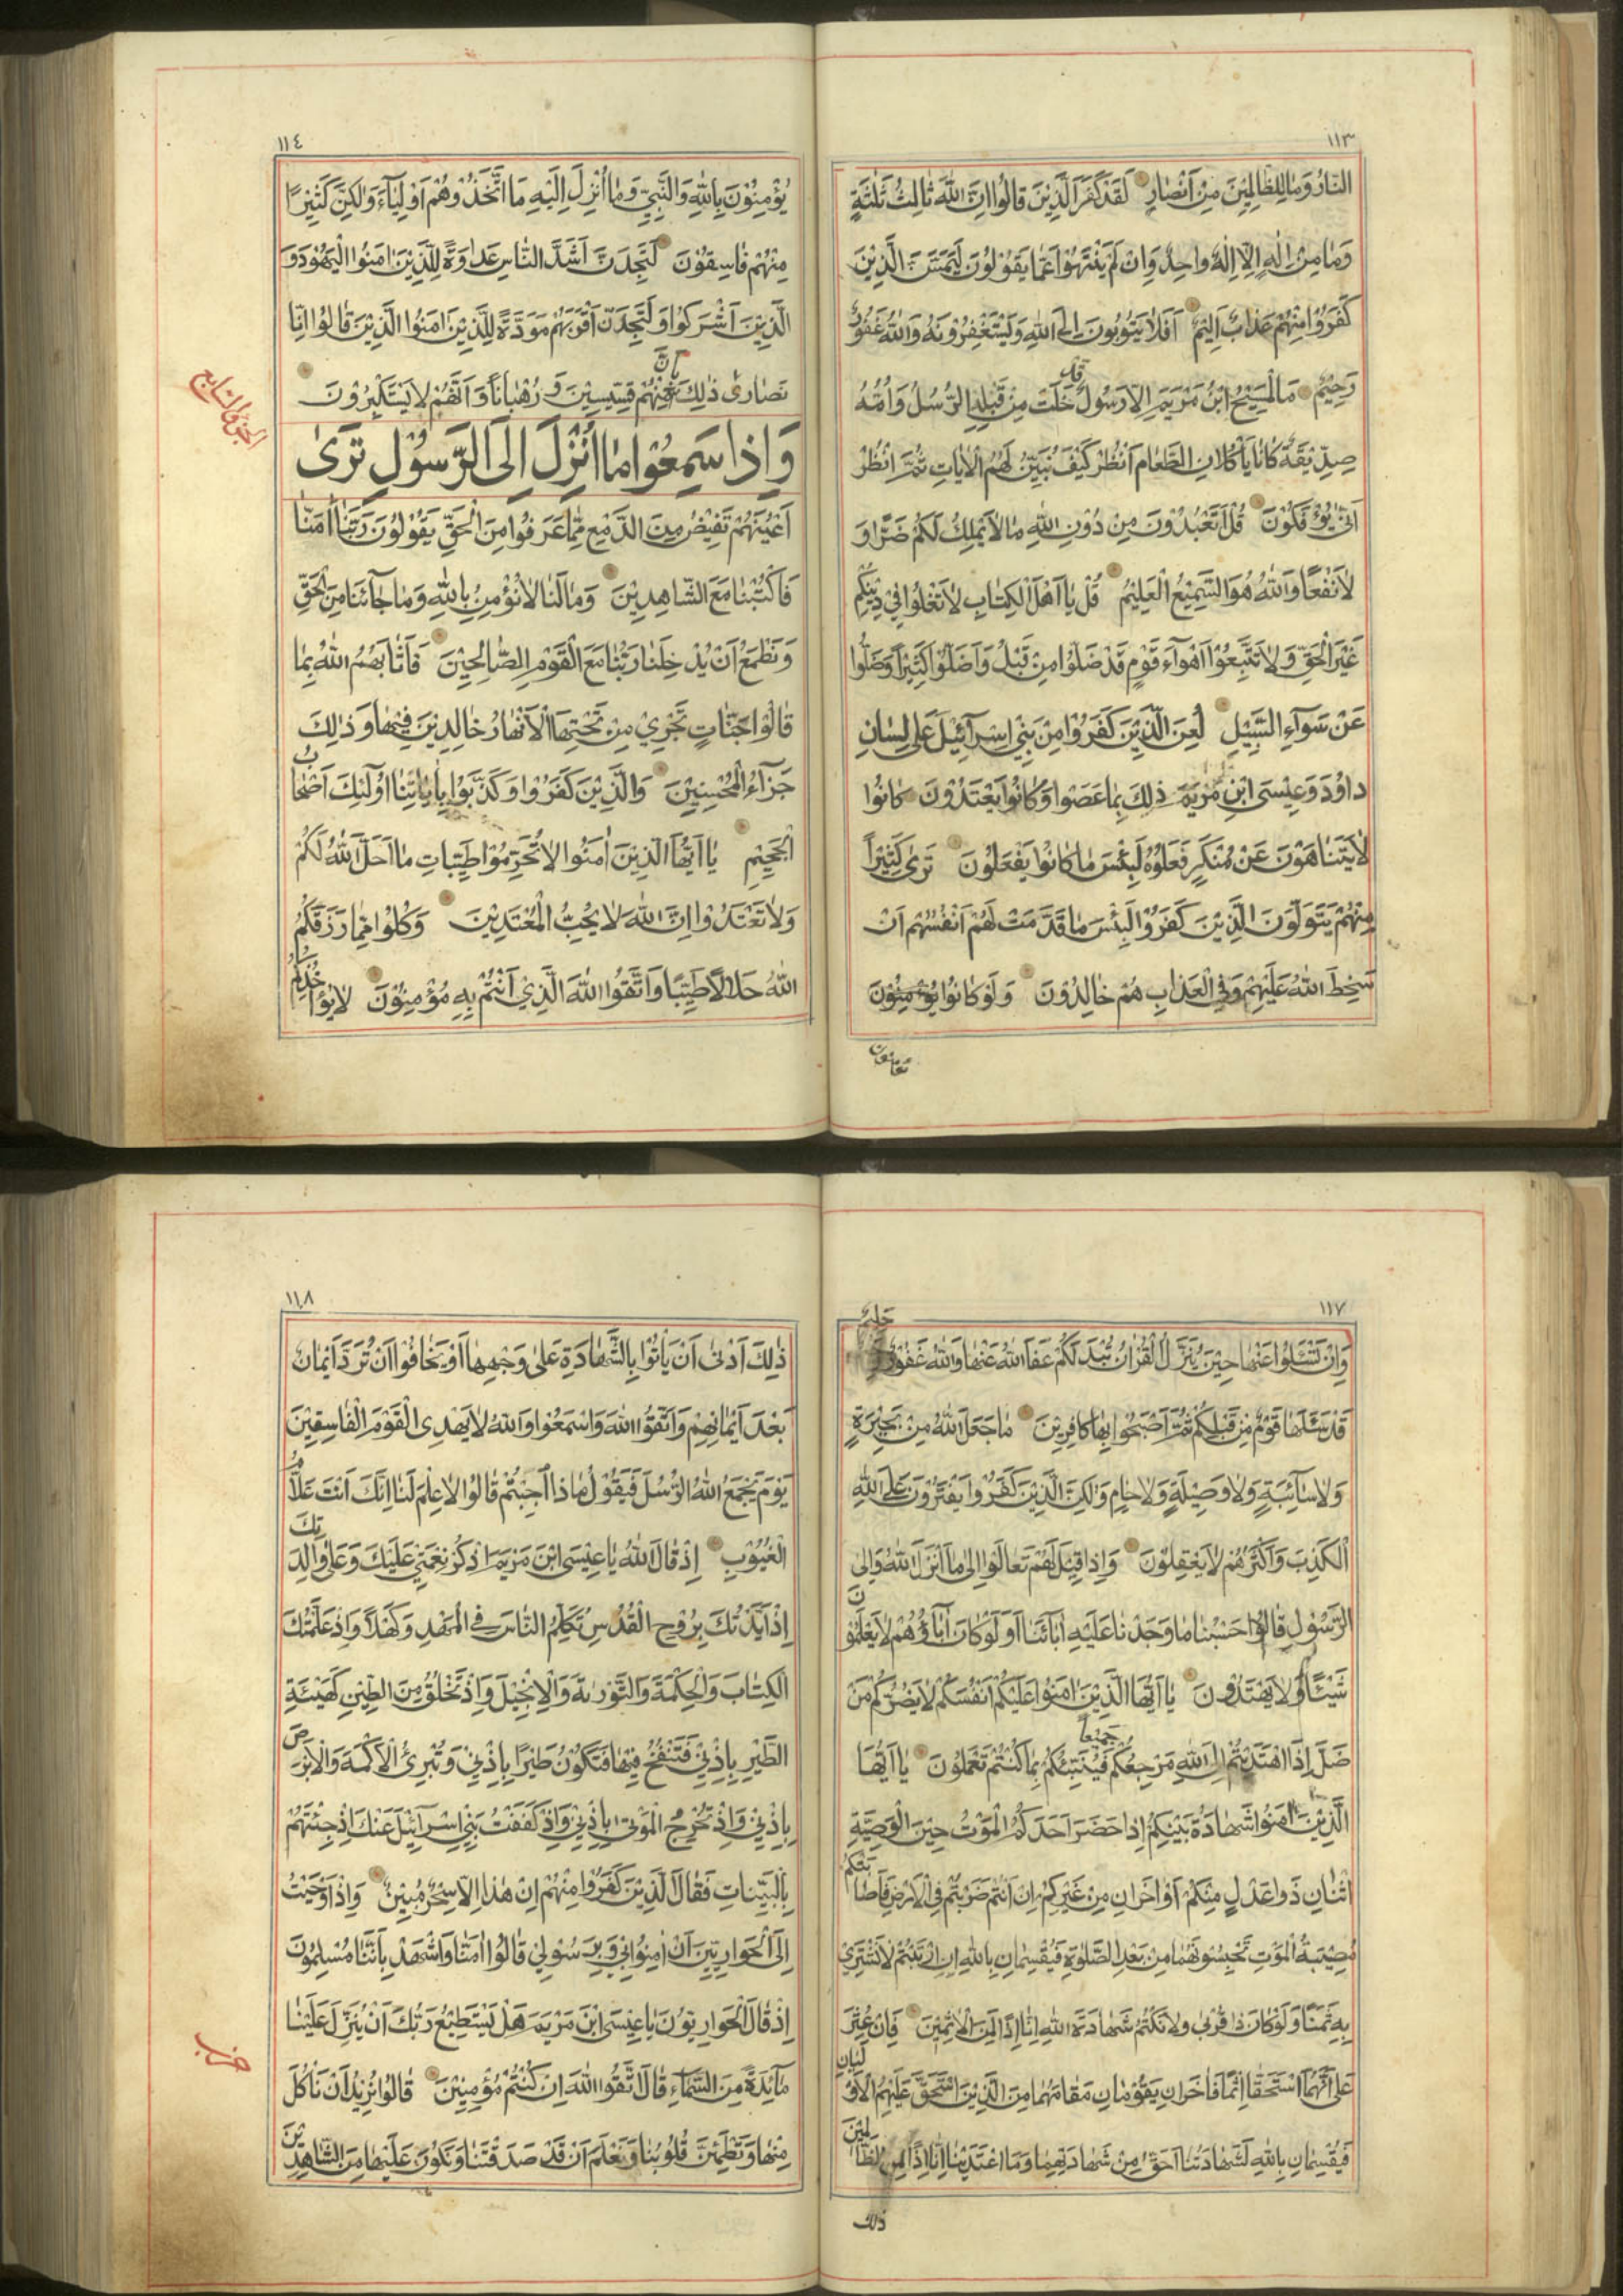 ١١٣
النار وما للظالمين من انصار لقد كفر الذين قالوا ان الله ثالث ثلثة
وما من اله الا اله واحد وان لم ينتهوا عما يقولون ليمسن الذين
كفروا منهم عذاب اليم افلا يتوبون الى الله ويستغفرونه والله غفور
رحيم ما المسيح ابن مريم الا رسول قد خلت من قبله الرسل وامه
صديقة كانا ياكلان الطعام انظر كيف نبين لهم الايات ثم انظر
انى يؤفكون قل اتعبدون من دون الله ما لا يملك لكم ضرا و
لا نفعا والله هو السميع العليم قل يا اهل الكتاب لا تغلوا في دينكم
غير الحق ولا تتبعوا اهوآء قوم قد ضلوا من قبل واضلوا كثيرا وضلوا
عن سوآء السبيل لعن الذين كفروا من بني اسرآئيل على لسان
داود وعيسى ابن مريم ذلك بما عصوا وكانوا يعتدون كانوا
لا يتناهون عن منكر فعلوه لبئس ما كانوا يفعلون ترى كثيرا
منهم يتولون الذين كفروا لبئس ما قدمت لهم انفسهم ان
سخط الله عليهم وفي العذاب هم خالدون ولو كانوا يؤمنون
١١٤
يؤمنون بالله والنبي وما انزل اليه ما اتخذوهم اوليآء ولكن كثيرا
منهم فاسقون لتجدن اشد الناس عداوة للذين امنوا اليهود و
الذين اشركوا ولتجدن اقربهم مودة للذين امنوا الذين قالوا انا
نصارى ذلك بان منهم قسيسين و رهبانا وانهم لا يستكبرون
الجزء السابع
واذا سمعوا ما انزل الى الرسول ترى
اعينهم تفيض من الدمع مما عرفوا من الحق يقولون ربنا امنا
فاكتبنا مع الشاهدين وما لنا لا نؤمن بالله وما جآئنا من الحق
ونطمع ان يدخلنا ربنا مع القوم الصالحين فاثابهم الله بما
قالوا جنات تجري من تحتها الانهار خالدين فيها وذلك
جزآء المحسنين والذين كفروا وكذبوا باياتنا اولئك اصحاب
الجحيم يا ايها الذين امنوا لا تحرموا طيبات ما احل الله لكم
ولا تعتدوا ان الله لا يحب المعتدين وكلوا مما رزقكم
الله حلالا طيبا واتقوا الله الذي انتم به مؤمنون لا يؤاخذكم
١١٧
وان تسئلوا عنها حين ينزل القران تبد لكم عفا الله عنها والله غفور حليم
قد سئلها قوم من قبلكم ثم اصبحوا بها كافرين ما جعل الله من بحيرة
ولا سآئبة ولا وصيلة ولا حام ولكن الذين كفروا يفترون على الله
الكذب واكثرهم لا يعقلون واذا قيل لهم تعالوا الى ما انزل الله والى
الرسول قالوا حسبنا ما وجدنا عليه ابآئنا اولو كان ابآؤهم لا يعلمون
شيئا ولا يهتدون يا ايها الذين امنوا عليكم انفسكم لا يضركم من
ضل اذا اهتديتم الى الله مرجعكم جميعا فينبئكم بما كنتم تعملون يا ايها
الذين امنوا شهادة بينكم اذا حضر احدكم الموت حين الوصية
اثنان ذوا عدل منكم او اخران من غيركم ان انتم ضربتم في الارض فاصابتكم
مصيبة الموت تحبسونهما من بعد الصلوة فيقسمان بالله ان ارتبتم لا نشتري
به ثمنا ولو كان ذا قربى ولا نكتم شهادة الله انا اذا لمن الاثمين فان عثر
على انهما استحقا اثما فاخران يقومان مقامهما من الذين استحق عليهم الاوليان
فيقسمان بالله لشهادتنا احق من شهادتهما وما اعتدينا انا اذا لمن الظالمين
ذلك
١١٨
ذلك ادنى ان ياتوا بالشهادة على وجهها او يخافوا ان ترد ايمان
بعد ايمانهم واتقوا الله واسمعوا والله لا يهدى القوم الفاسقين
يوم يجمع الله الرسل فيقول ماذا اجبتم قالوا لا علم لنا انك انت علام
الغيوب اذ قال الله يا عيسى ابن مريم اذكر نعمتي عليك وعلى والدتك
اذ ايدتك بروح القدس تكلم الناس في المهد وكهلا واذ علمتك
الكتاب والحكمة والتورىة والانجيل واذ تخلق من الطين كهيئة
الطير باذني فتنفخ فيها فتكون طيرا باذني وتبرئ الاكمه والابرص
باذني واذ تخرج الموتى باذني واذ كففت بني اسرآئيل عنك اذ جئتهم
بالبينات فقال الذين كفروا منهم ان هذا الا سحر مبين واذ اوحيت
الى الحواريين ان امنوا بي وبرسولي قالوا امنا واشهد باننا مسلمون
اذ قال الحواريون يا عيسى ابن مريم هل يستطيع ربك ان ينزل علينا
مآئدة من السمآء قال اتقوا الله ان كنتم مؤمنين قالوا نريد ان ناكل
منها وتطمئن قلوبنا ونعلم ان قد صدقتنا ونكون عليها من الشاهدين
حزب